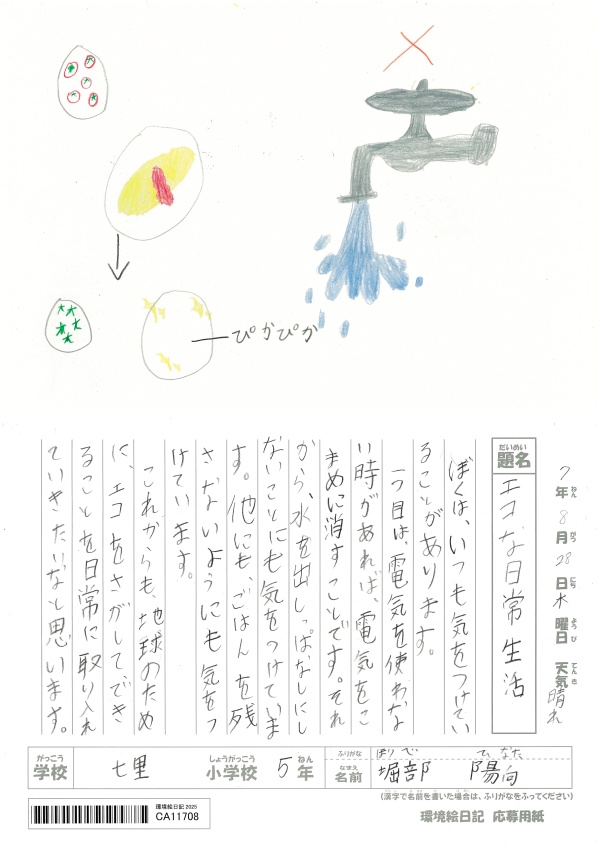 ぴかぴか
7年 8月 28日 木曜日 天気 晴れ
ねん がつ にち ようび てんき
だいめい
題名
エコな日常生活
ぼくは、いつも気をつけてい
ることがあります。
一つ目は、電気を使わな
い時があれば、電気をこ
まめに消すことです。それ
から、水を出しっぱなしにし
ないことにも気をつけていま
す。他にも、ごはんを残
さないようにも気をつ
けています。
これからも、地球のため
に、エコをさがしてでき
ることを日常に取り入れ
ていきたいなと思います。
がっこう しょうがっこう ねん ふりがな ほりべ ひなた
学校 七里 小学校 5年 なまえ 名前 堀部 陽向
(漢字で名前を書いた場合は、ふりがなをふってください)
環境絵日記 応募用紙
環境絵日記 2025
CA11708